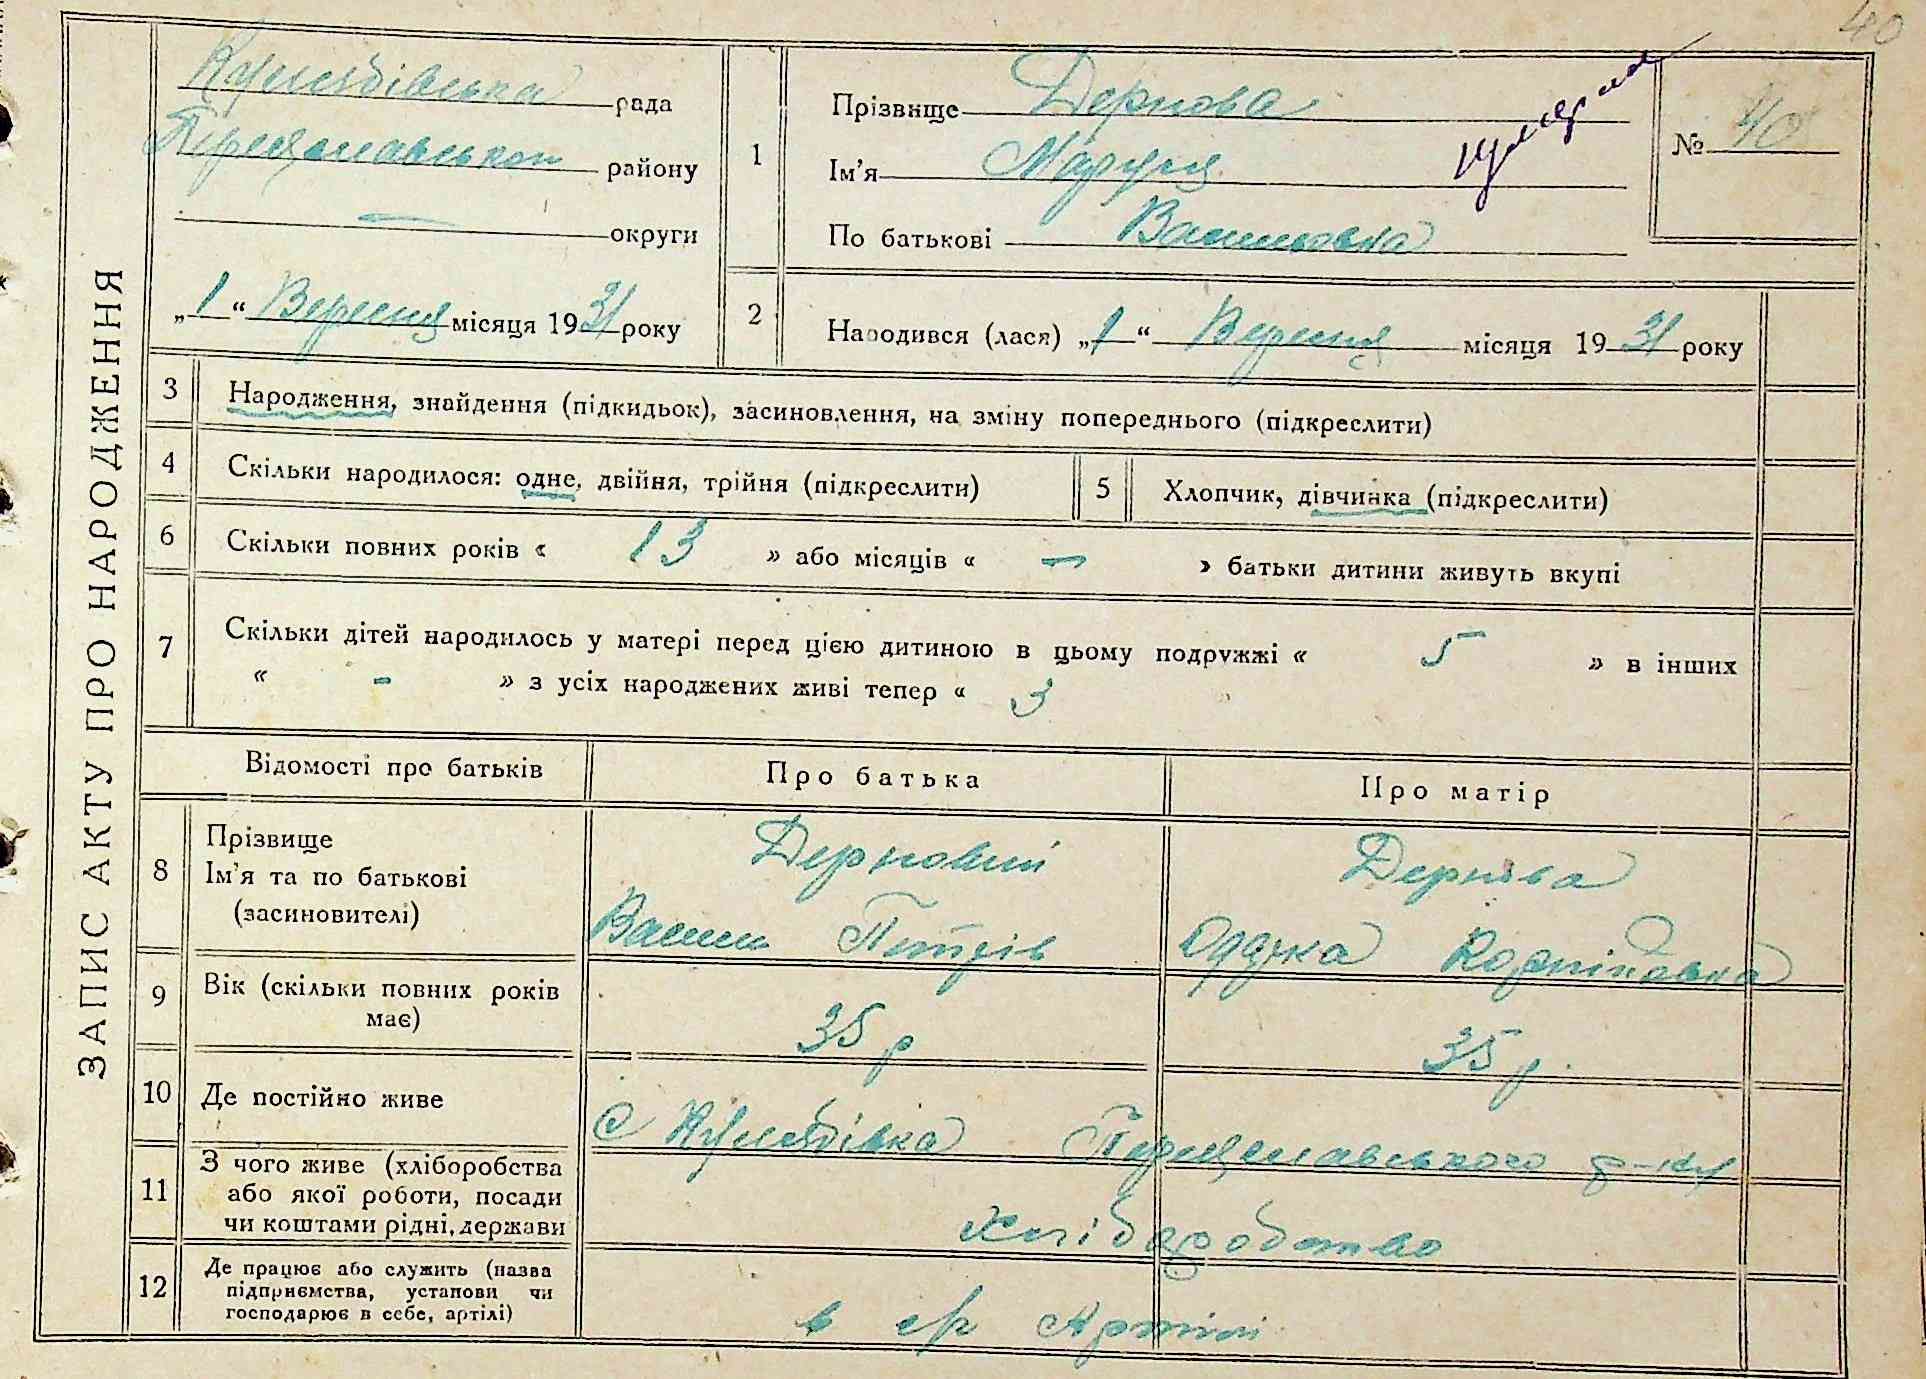 40
ЗАПИС АКТУ ПРО НАРОДЖЕННЯ
Пологівська рада
Переяславського району
— округи
„1“ Вересня місяця 1931 року
1
Прізвище Дернова
Ім'я Маруся
По батькові Василівна
умерла
№ 40
2
Народився (лася) „1“ Вересня місяця 1931 року
3 Народження, знайдення (підкидьок), засиновлення, на зміну попереднього (підкреслити)
4 Скільки народилося: одне, двійня, трійня (підкреслити)
5 Хлопчик, дівчинка (підкреслити)
6 Скільки повних років « 13 » або місяців « — » батьки дитини живуть вкупі
7 Скільки дітей народилось у матері перед цією дитиною в цьому подружжі « 5 » в інших
« - » з усіх народжених живі тепер « 3
Відомості про батьків
Про батька
Про матір
8 Прізвище
Ім'я та по батькові
(засиновителі)
Дерновий
Василь Петрів
Дернова
9 Вік (скільки повних років
має)
35 р
35 р.
10 Де постійно живе
с Переяславського р-ну
11 З чого живе (хліборобства
або якої роботи, посади
чи коштами рідні, держави
Хліборобство
12 Де працює або служить (назва
підприємства, установи чи
господарює в себе, артілі)
в с/г Артілі